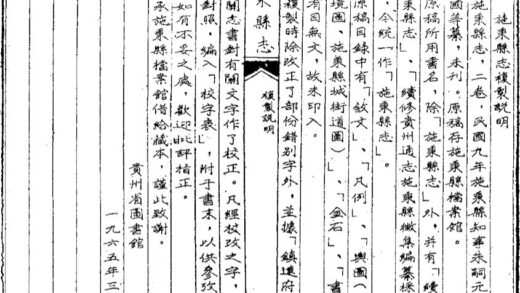 施秉縣志複製説明
施秉縣志，二卷，民國九年施秉縣知事朱嗣元
國等纂，未刊。原稿存施秉縣檔案館。
原稿所用書名，除「施秉縣志」外，并有「續
志」、「續修貴州通志施秉縣徵集編纂採
，今統一作「施秉縣志」。
原稿目錄中有「敘文」、「凡例」、「輿圖（
境圖、施秉縣城街道圖）」、「金石」、「書
有目無文，故未印入。
複製時除改正了部份錯別字外，並據「鎮遠府
秉縣志 複製説明
關志書對有關文字作了校正。凡經校改之字，
對照，編入「校字表」，附于書末，以供參攷
如有不妥之處，歡迎批評指正。
承施秉縣檔案館借給藏本，謹此致謝。
貴州省圖書館
一九六五年三